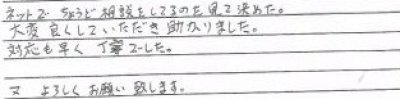 ネットで ちょうど相談をしてるのを見て決めた。
大変良くしていただき助かりました。
対応も早く 丁寧でした。
又 よろしくお願い致します。